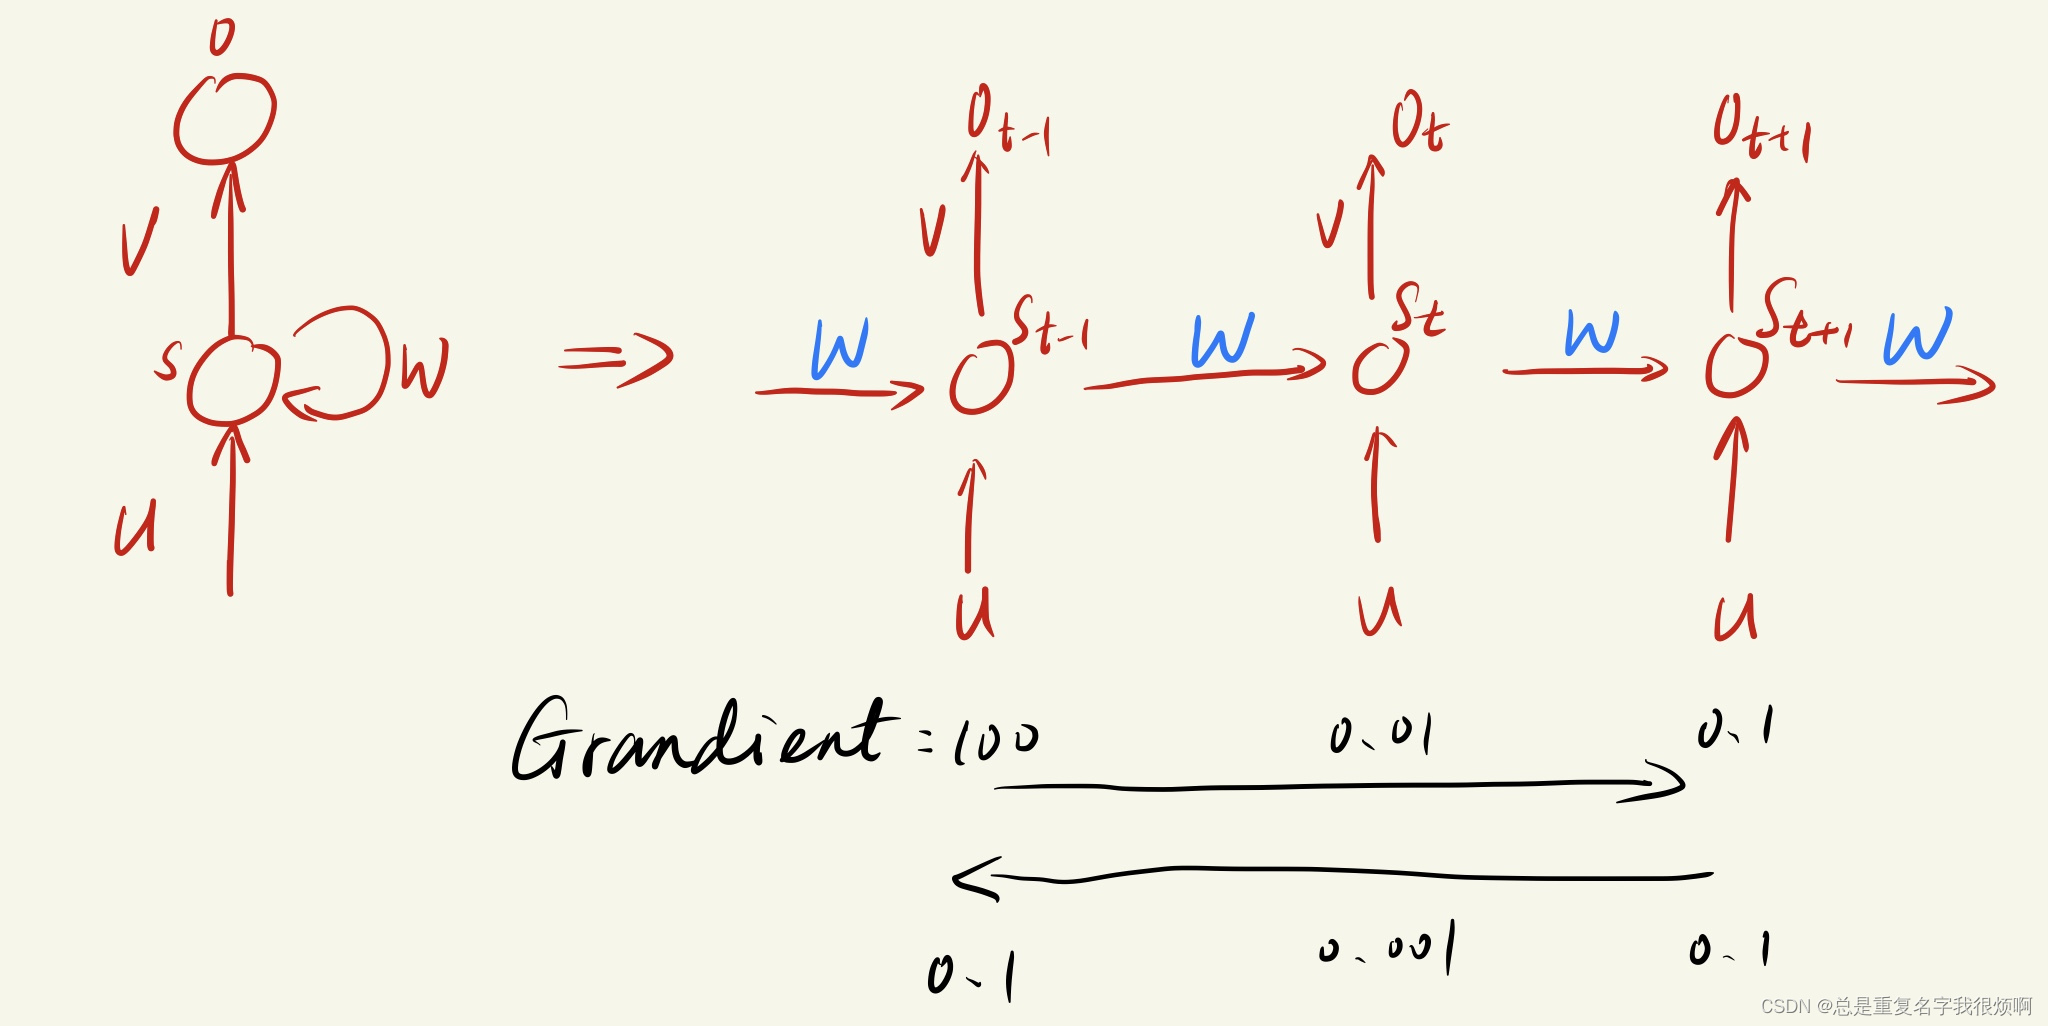 O
V
S
W
U
⇒
O_{t-1}
O_t
O_{t+1}
V
V
S_{t-1}
S_t
S_{t+1}
W
W
W
W
U
U
U
Grandient = 100
0.01
0.1
0.1
0.001
0.1
CSDN @总是重复名字我很烦啊